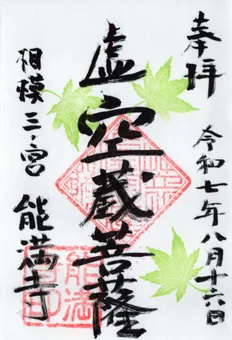 奉拝
令和七年八月十六日
虚空蔵菩薩
相模三ノ宮
能満寺